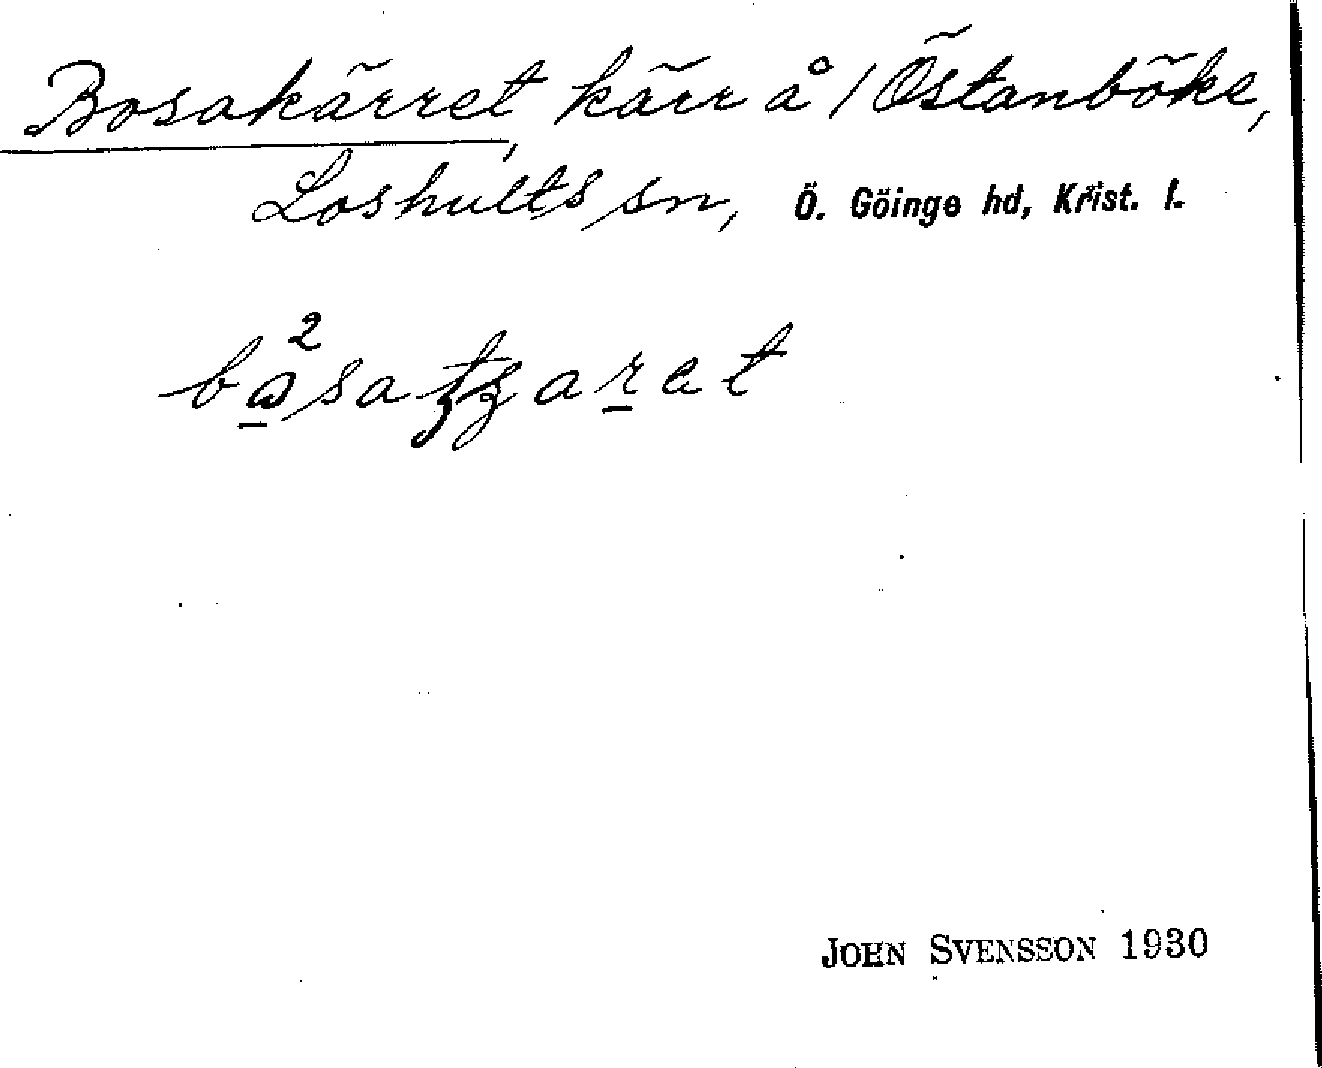 Bosakärret, kärr å / Östanböke,
Loshults sn, Ö. Göinge hd, Krist. l.
JOHN SVENSSON 1930